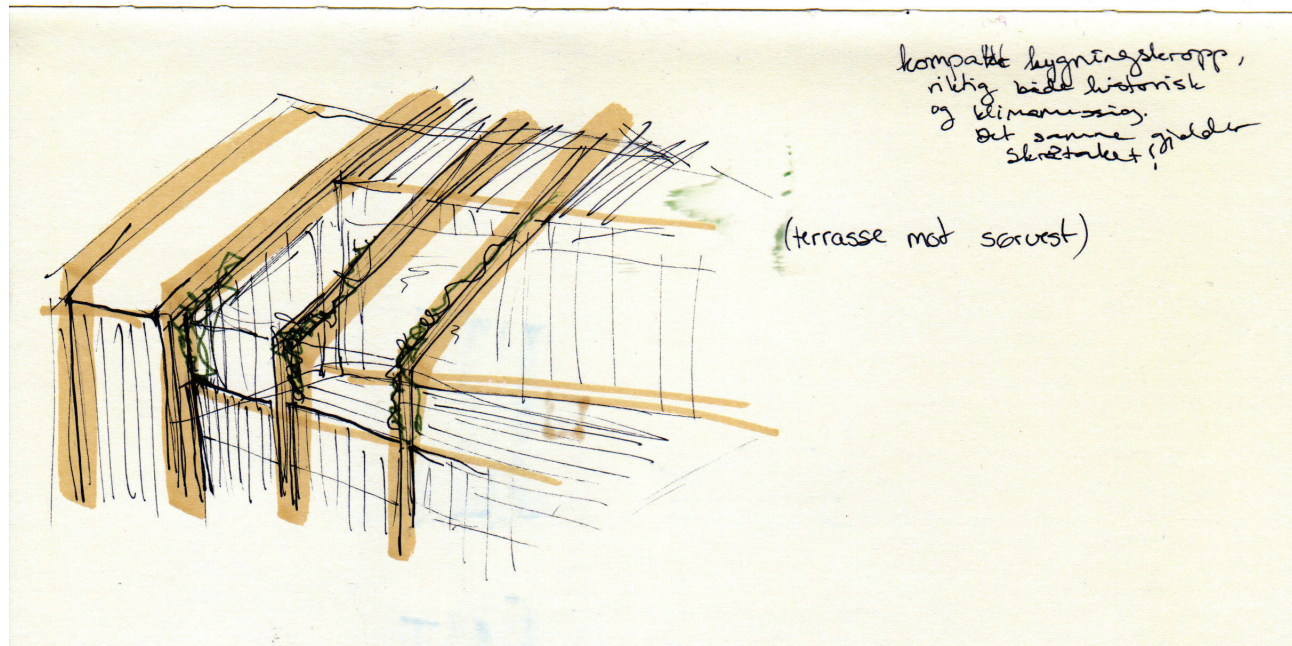 kompakt bygningskropp,
riktig både historisk
og klimamessig.
Det samme gjelder
skråtaket!
(terrasse mot sørvest)